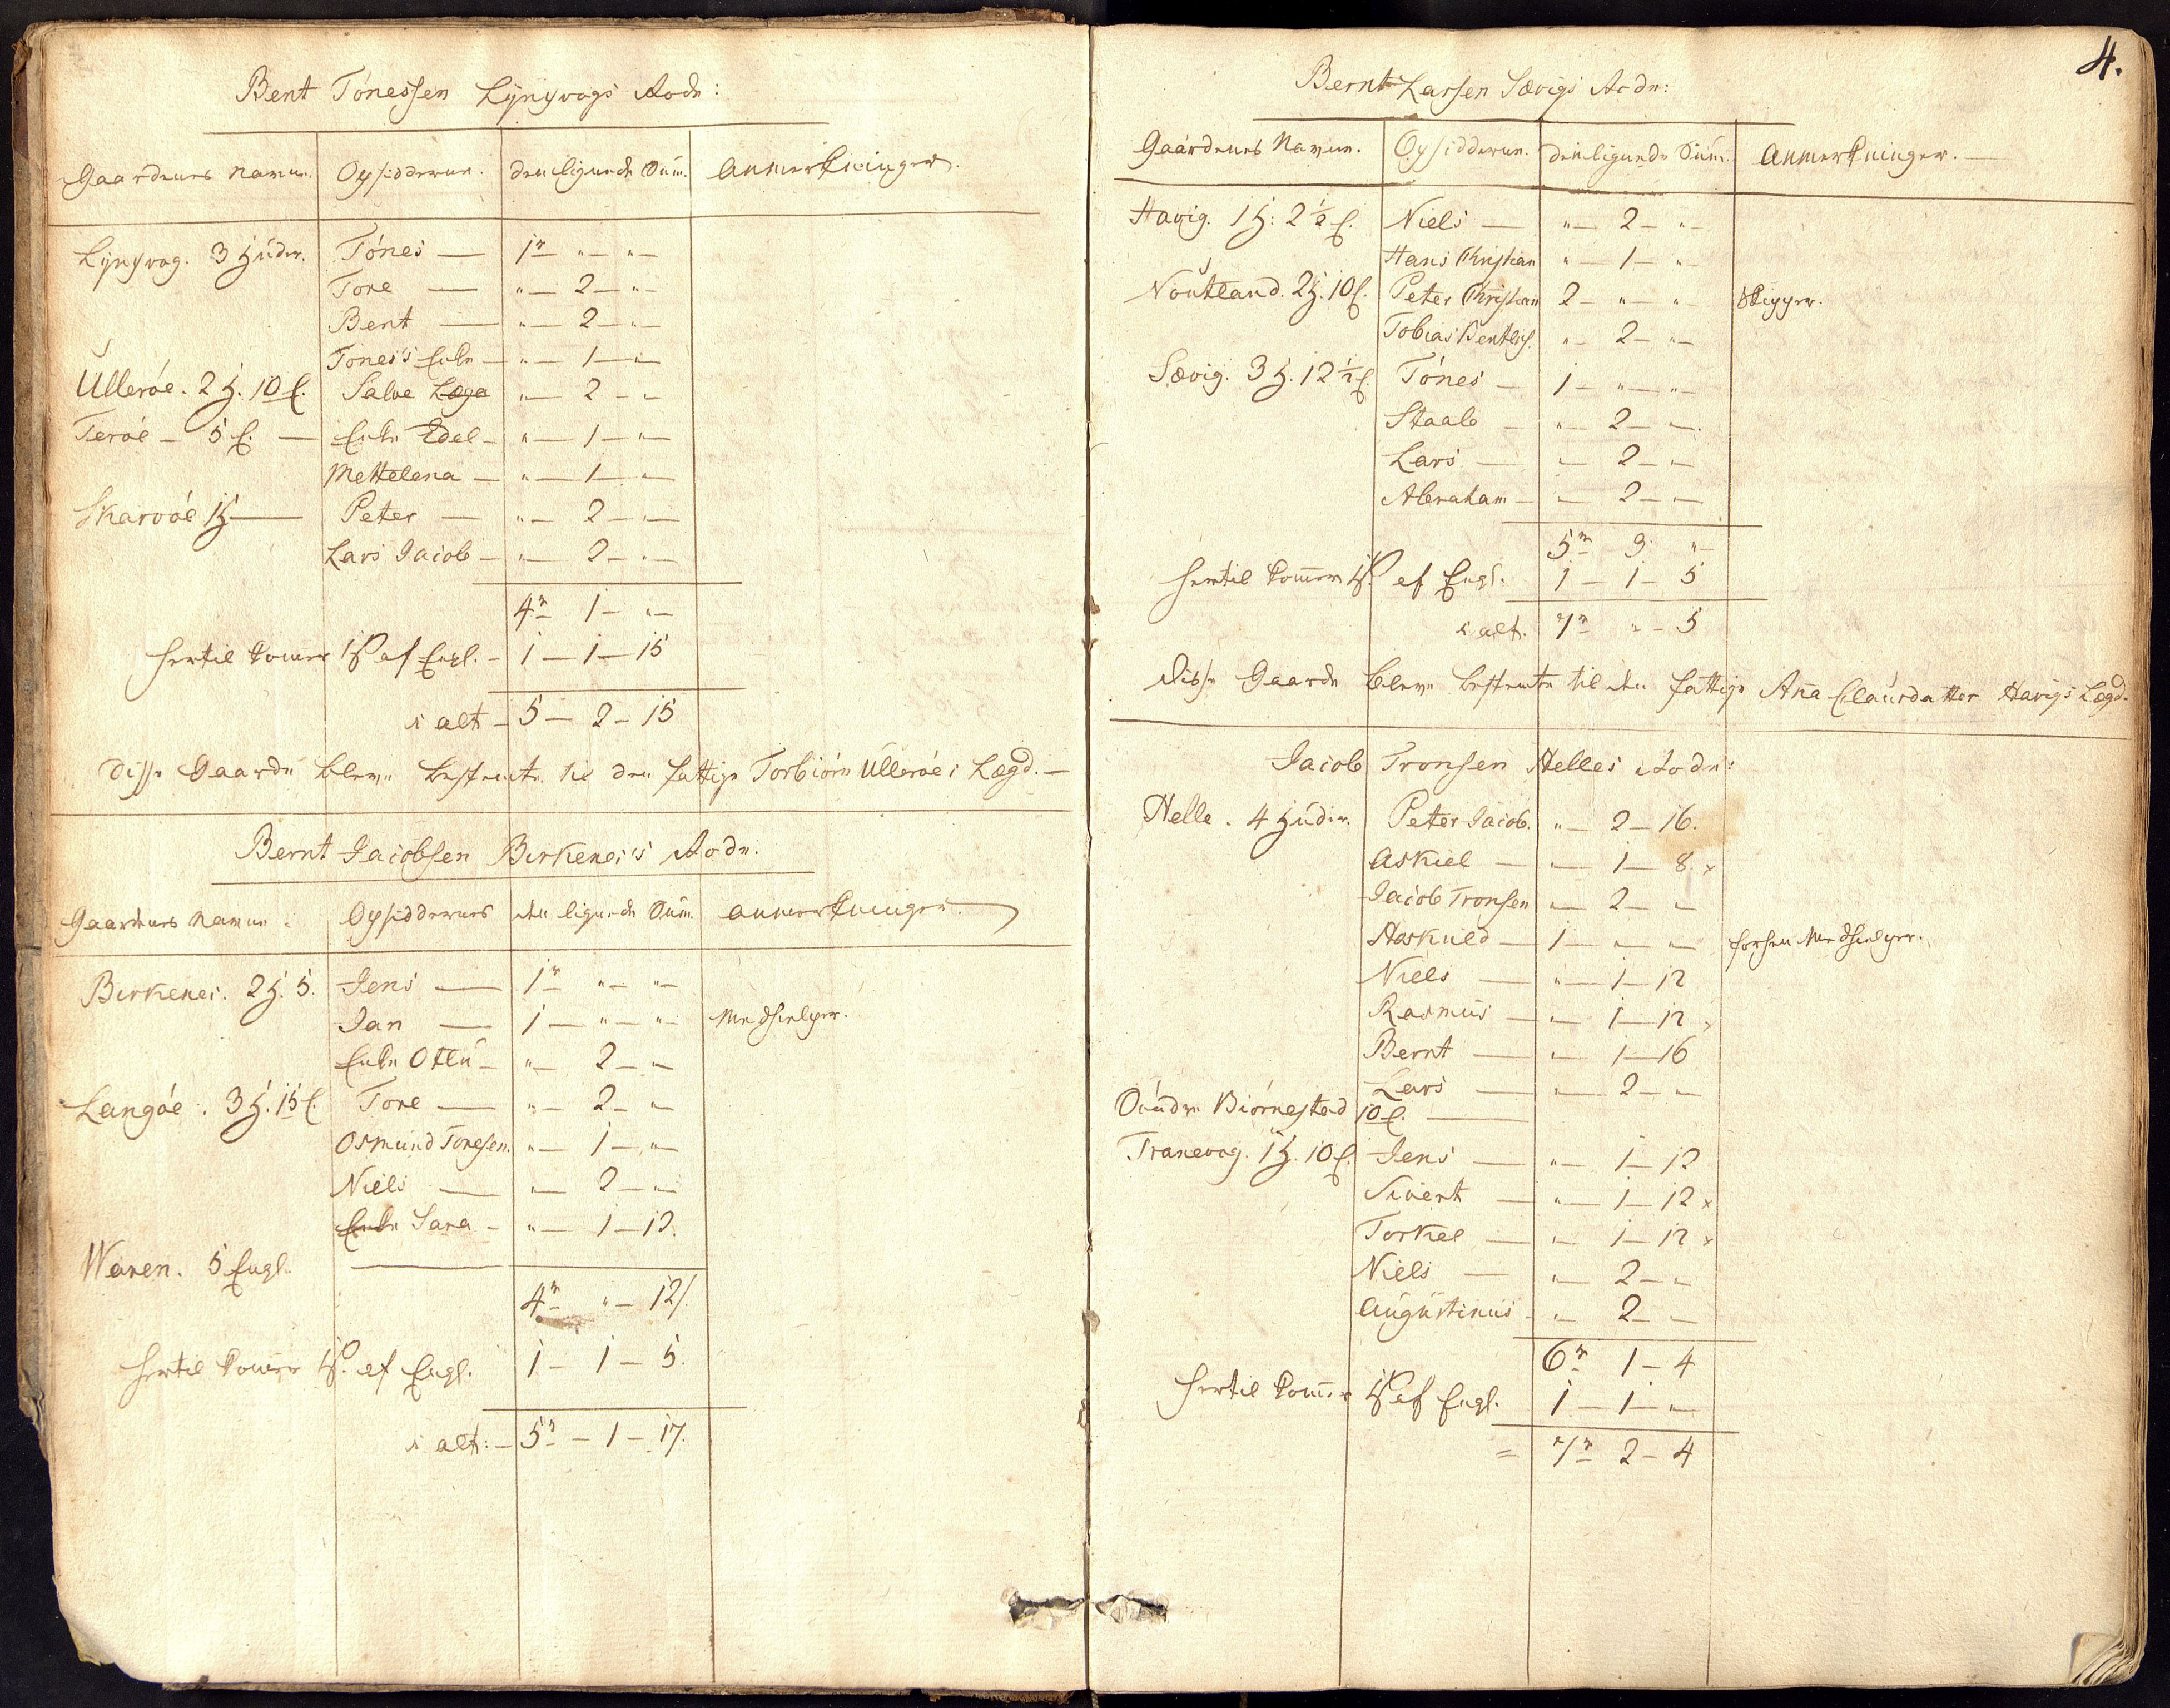 Bent Tönessen Lÿngvogs Rode:
Gaardenes Navne. Opsidderne. den lignede Sum. Anmerkninger.
Lÿngvog. 3 Huder. Tönes — 1 r — " — " —
Tore — " — 2 — " —
Bent — " — 2 — " —
Tönes's Enke — " — 1 — " —
Ulleröe. 2 H. 10 E. Salve Læga " — 2 — "
Teröe — 5 E. — Enke Edel — " — 1 — " —
Mettelena — " — 1 — " —
Skarvöe 1 H — Peter — " — 2 — " —
Lars Jacob — " — 2 — " —
4 r 1 — " —
hertil kommer 1 ß af Engl. — 1 — 1 — 15
i alt — 5 — 2 — 15
Disse Gaarde bleve bestemte til den fattige Torbiörn Ulleröes Lægd. —
Bernt Jacobsen Birkenes's Rode:
Gaardenes Navne. Opsiddernes den lignede Sum. Anmerkninger.
Birkenes. 2 H. 5. Jens — 1 r " — " —
Jan — 1 — " — " Medhielper.
Enke Ottu — " — 2 — "
Langöe. 3 H. 15 E. Tore — " — 2 — "
Osmund Toresen. " — 1 — " —
Niels — " — 2 — "
Enke Sara — " — 1 — 12.
Waren. 5 Engl. —
4 r " — 12 ß.
hertil kommer 1 ß. af Engl. 1 — 1 — 5.
i alt: — 5 r — 1 — 17.
4.
Bernt Larsen Sævigs Rode:
Gaardenes Navne. Opsidderne. den lignede Sum. Anmerkninger. —
Havig. 1 H: 2 ½ E. Niels — " — 2 — " —
Hans Christian " — 1 — " —
Noutland. 2 H. 10 E. Peter Christian 2 — " — " Skipper.
Tobias Bentes. " — 2 — " —
Sævig. 3 H. 12 ½ E. Tönes — 1 — " — " —
Staale — " — 2 — " —
Lars — " — 2 — "
Abraham — " — 2 — "
5 r 3 " —
hertil kommer 1 ß af Engl. 1 — 1 — 5
i alt. 7 r " — 5
Disse Gaarde bleve bestemte til den fattige Ana Clausdatter Havigs Lægd.
Jacob Tronsen Helles Rode:
Helle. 4 Huder. Peter Jacob. " — 2 — 16.
Askiel — " — 1 — 8. x
Jacob Tronsen " — 2 — "
Haskuld — 1 — " — " forhen Medhielper.
Niels — " — 1 — 12
Rasmus — " — 1 — 12 x
Bernt — " — 1 — 16
Lars — " — 2 — "
Biörnestad 10 E. —
Tranevog. 1 H. 10 E. Jens — " — 1 — 12
Sivert — " — 1 — 12 x
Torkel — " — 1 — 12 x
Niels — " — 2 — "
Augustinus — " 2 — "
6 r 1 — 4
hertil kommer 1 ß af Engl. 1 — 1 — "
= 7 r 2 — 4